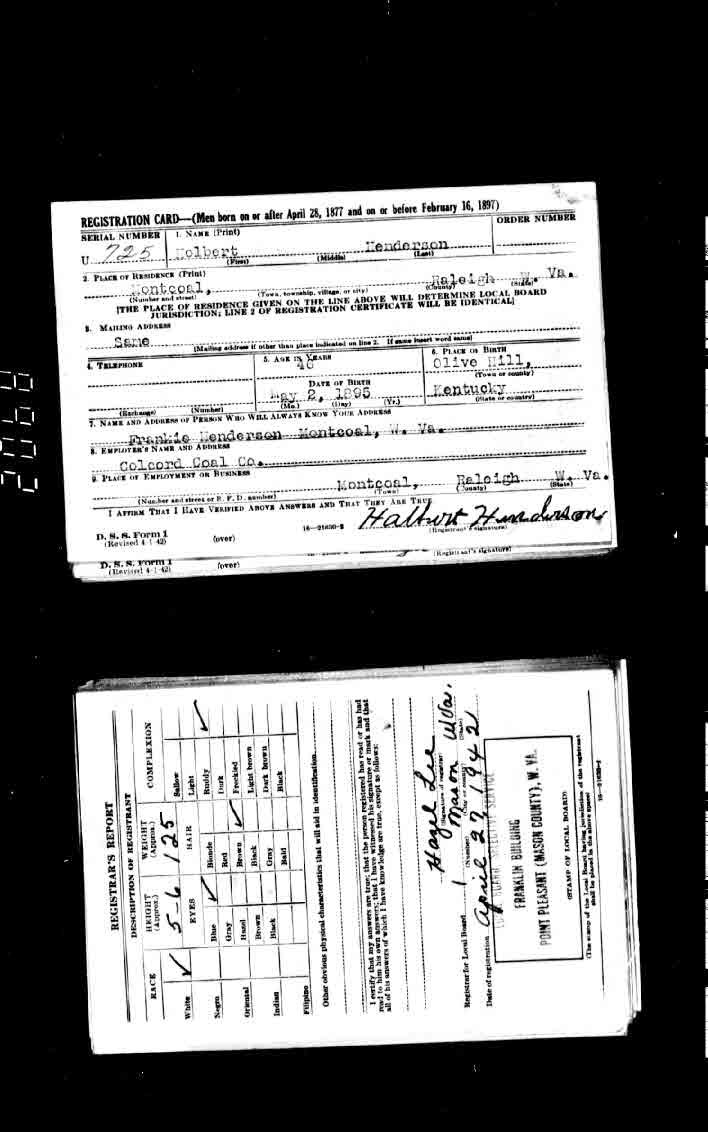 REGISTRATION CARD—(Men born on or after April 28, 1877 and on or before February 16, 1897)
SERIAL NUMBER 1. NAME (Print) ORDER NUMBER
U 725 Holbert Henderson
(First) (Middle) (Last)
2. PLACE OF RESIDENCE (Print)
Montcoal, Raleigh W. Va.
(Number and street) (Town, township, village, or city) (County) (State)
[THE PLACE OF RESIDENCE GIVEN ON THE LINE ABOVE WILL DETERMINE LOCAL BOARD
JURISDICTION; LINE 2 OF REGISTRATION CERTIFICATE WILL BE IDENTICAL]
3. MAILING ADDRESS
Same
[Mailing address if other than place indicated on line 2. If same insert word same]
4. TELEPHONE 5. AGE IN YEARS 6. PLACE OF BIRTH
46 Olive Hill,
(Town or county)
DATE OF BIRTH
May 2, 1895 Kentucky
(Exchange) (Number) (Mo.) (Day) (Yr.) (State or country)
7. NAME AND ADDRESS OF PERSON WHO WILL ALWAYS KNOW YOUR ADDRESS
Frankie Henderson Montcoal, W. Va.
8. EMPLOYER'S NAME AND ADDRESS
Colcord Coal Co.
9. PLACE OF EMPLOYMENT OR BUSINESS
Montcoal, Raleigh W. Va.
(Number and street or R. F. D. number) (Town) (County) (State)
I AFFIRM THAT I HAVE VERIFIED ABOVE ANSWERS AND THAT THEY ARE TRUE.
D. S. S. Form 1 16—21630-2 Halburt Henderson
(Revised 4-1-42) (over) (Registrant's signature)
D. S. S. Form 1 (Registrant's signature)
(Revised 4-1-42) (over)
REGISTRAR'S REPORT
DESCRIPTION OF REGISTRANT
RACE HEIGHT (Approx.) WEIGHT (Approx.) COMPLEXION
White ✓ 5-6 125 Sallow
EYES HAIR Light ✓
Negro Blue ✓ Blonde Ruddy
Gray Red Dark
Oriental Hazel Brown ✓ Freckled
Brown Black Light brown
Indian Black Gray Dark brown
Bald Black
Filipino
Other obvious physical characteristics that will aid in identification
I certify that my answers are true; that the person registered has read or has had
read to him his own answers; that I have witnessed his signature or mark and that
all of his answers of which I have knowledge are true, except as follows:
Hazel Lee
(Signature of registrar)
Registrar for Local Board 1 Mason W. Va.
(Number) (City or county) (State)
Date of registration April 27 1942
FRANKLIN BUILDING
POINT PLEASANT (MASON COUNTY), W. VA.
(STAMP OF LOCAL BOARD)
(The stamp of the Local Board having jurisdiction of the registrant
shall be placed in the above space)
16—21630-2